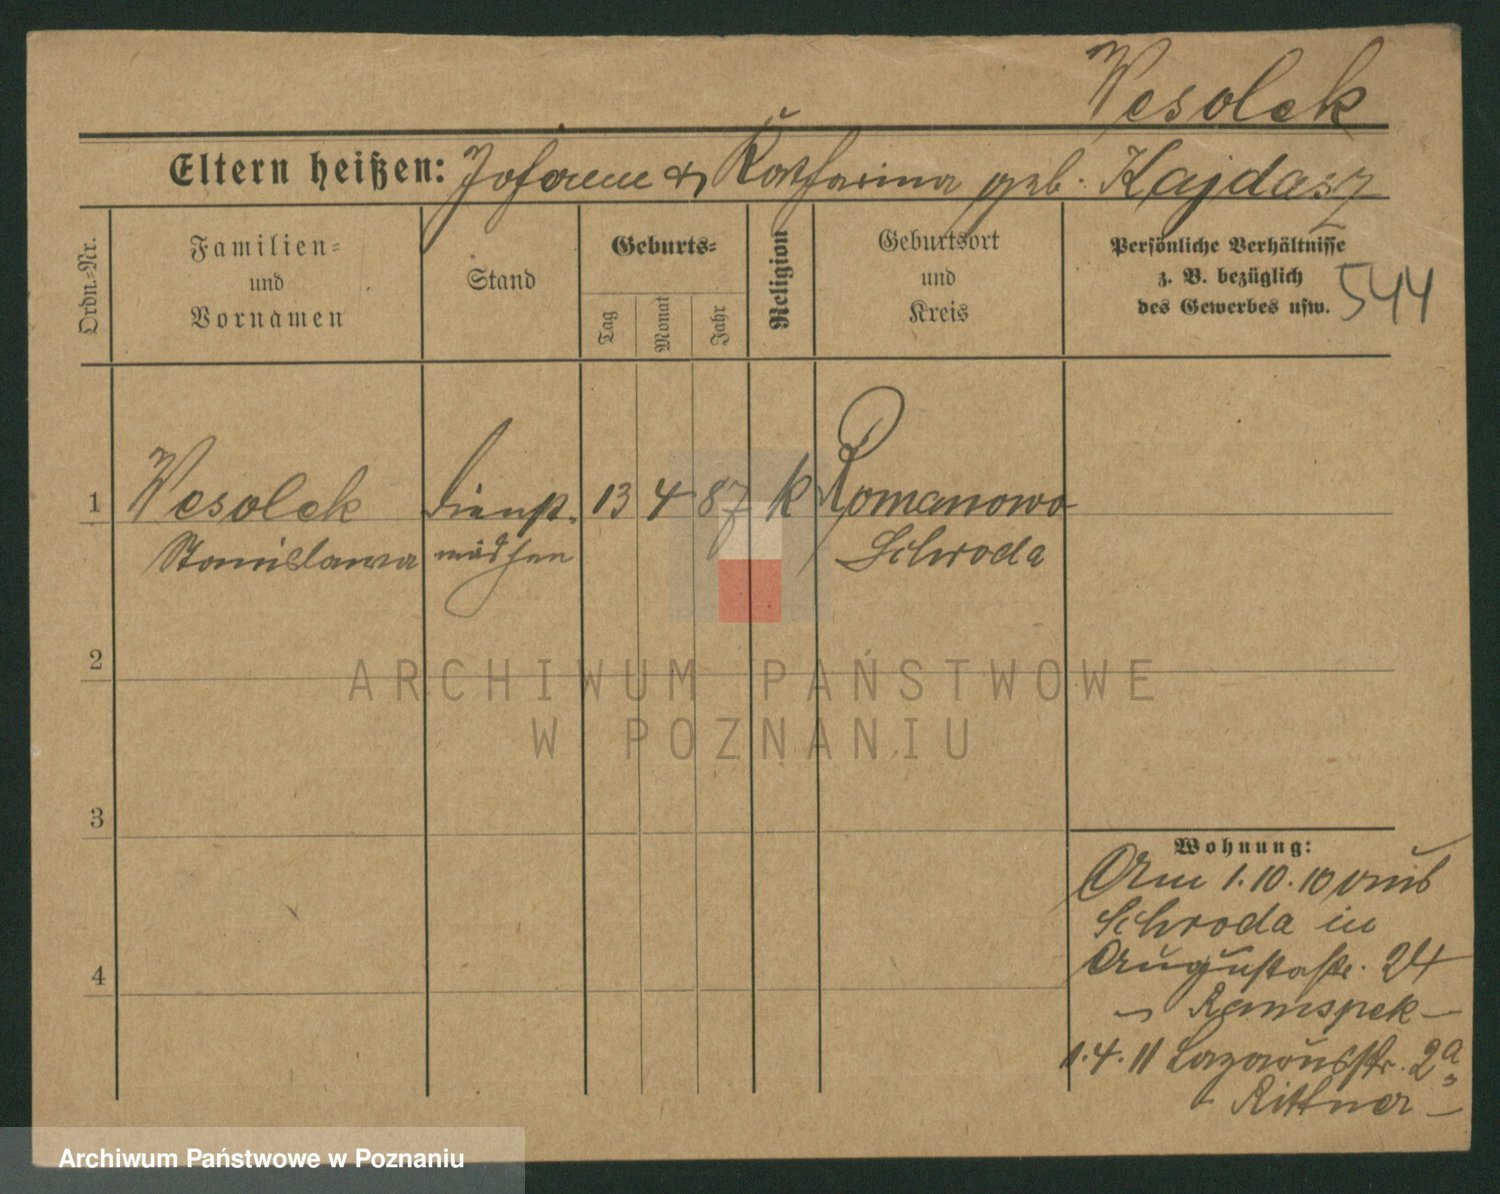 Wesolek
Eltern heißen: Johann & Katharina geb. Kajdasz
Ordn.-Nr.
Familien-
und
Vornamen
Stand
Geburts-
Tag
Monat
Jahr
Religion
Geburtsort
und
Kreis
Persönliche Verhältnisse
z. B. bezüglich
des Gewerbes usw.
544
1 Wesolek Dienst- 13 4 87 k Romanowo
Stanislawa mädchen Schroda
2
3
4
Wohnung:
Am 1.10.10 aus
Schroda in
Augustastr. 24
- Ramspek -
1.4.11 Lazarusstr. 2a
- Rittner -
ARCHIWUM PAŃSTWOWE
W POZNANIU
Archiwum Państwowe w Poznaniu